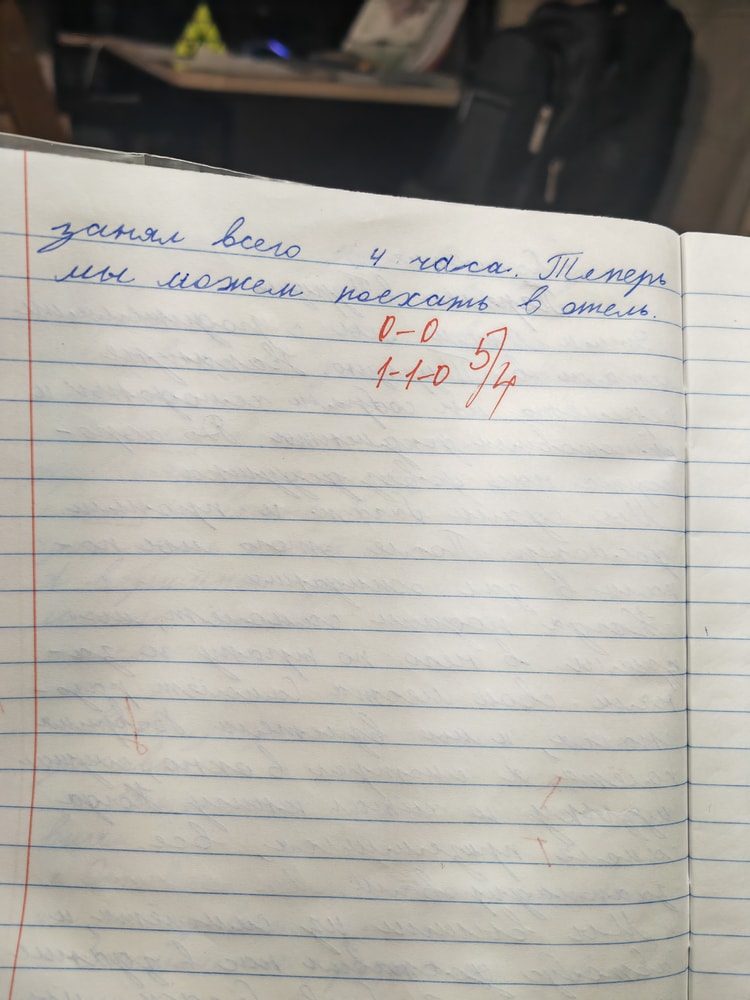 занял всего 4 часа. Теперь
мы можем поехать в отель.
0-0
1-1-0 5/4